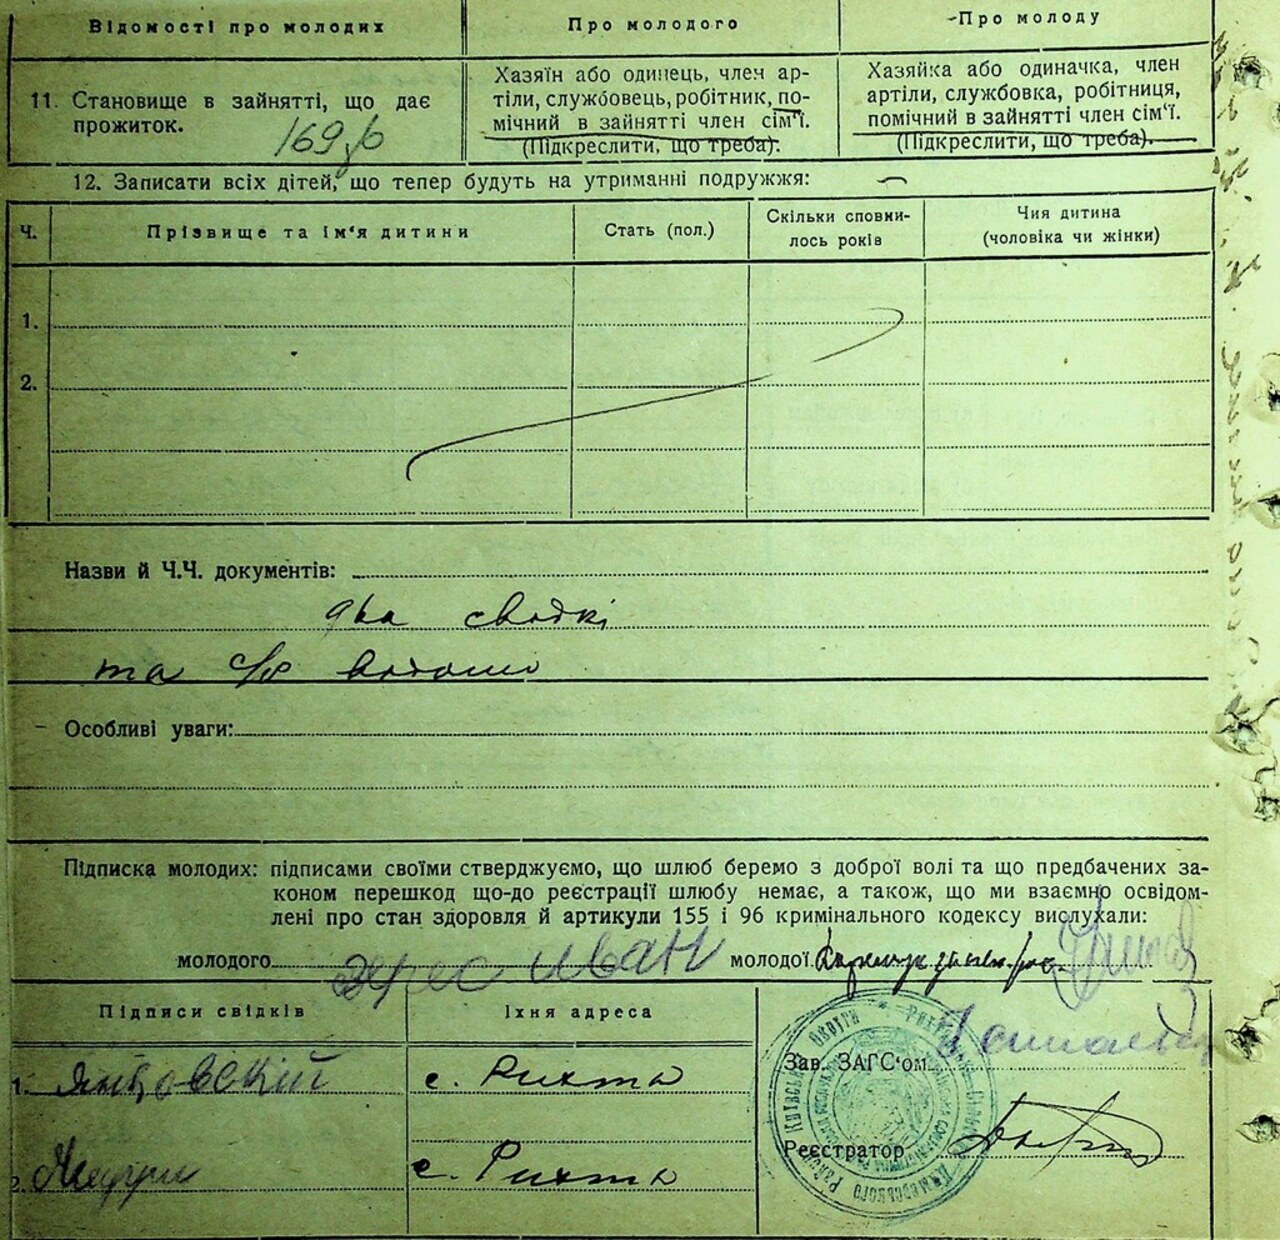 Відомості про молодих
Про молодого
Про молоду
11. Становище в зайнятті, що дає
прожиток.
169
Хазяїн або одинець, член ар-
тіли, службовець, робітник, по-
мічний в зайнятті член сім'ї.
(Підкреслити, що треба).
Хазяйка або одиначка, член
артіли, службовка, робітниця,
помічний в зайнятті член сім'ї.
(Підкреслити, що треба).
12. Записати всіх дітей, що тепер будуть на утриманні подружжя:
Ч.
Прізвище та ім'я дитини
Стать (пол.)
Скільки сповни-
лось років
Чия дитина
(чоловіка чи жінки)
1.
2.
Назви й Ч.Ч. документів:
два свідкі
та с/р
Особливі уваги:
Підписка молодих: підписами своїми стверджуємо, що шлюб беремо з доброї волі та що предбачених за-
коном перешкод що-до реєстрації шлюбу немає, а також, що ми взаємно освідом-
лені про стан здоровля й артикули 155 і 96 кримінального кодексу вислухали:
молодого Іван молодої
Підписи свідків
Їхня адреса
1. Янковскій
с. Рихта
Зав. ЗАГС'ом
2.
с. Рихта
Реєстратор